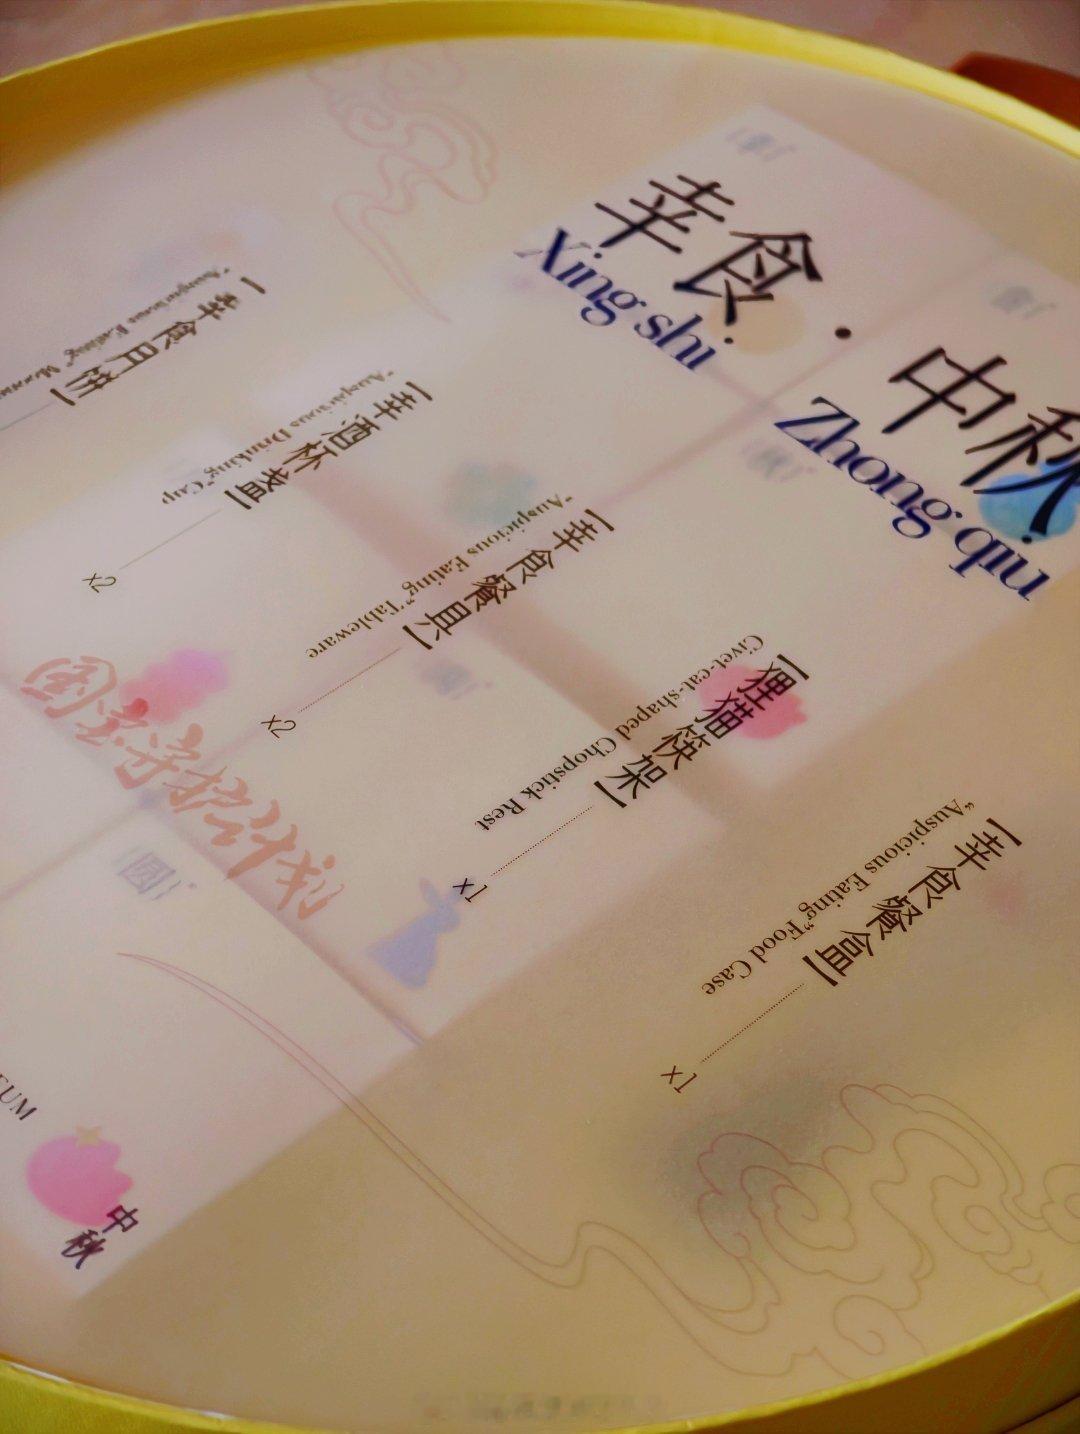 幸食·中秋
Xing shi Zhong qiu
【幸食月饼】
"Auspicious Eating"
【幸酒杯盏】
"Auspicious Drinking" Cup
x2
【幸食餐具】
"Auspicious Eating" Tableware
x2
【狸猫筷架】
Civet-cat-shaped Chopstick Rest
x1
【幸食餐盒】
"Auspicious Eating" Food Case
x1
国宝守护计划
圆
中秋